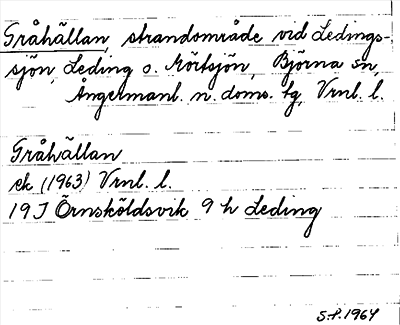 Gråhällan, strandområde vid Ledings-
sjön, Leding o. Mörtsjön, Björna sn,
Ångermanl. n. doms. tg, Vrnl. l.
Gråhällan
ek (1963) Vrnl. l.
19 J Örnsköldsvik 9 h Leding
S.P. 1964